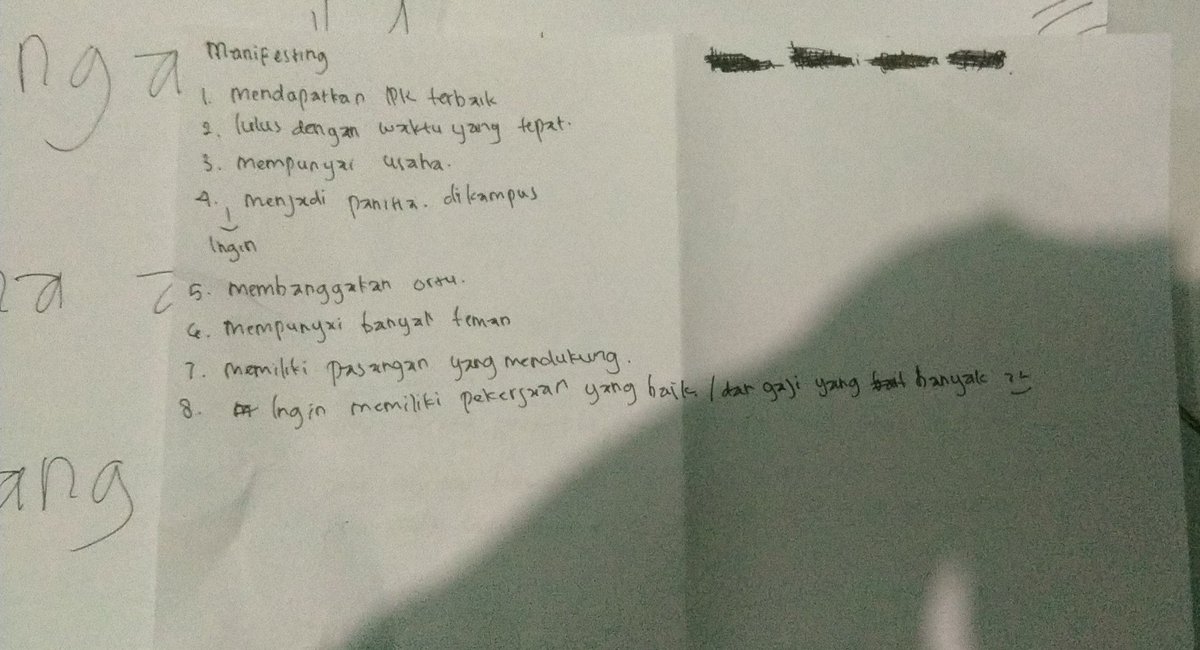 nga
Manifesting
1. mendapatkan IPK terbaik
2. lulus dengan waktu yang tepat.
3. mempunyai usaha.
4. menjadi panitia. dikampus
Ingin
5. membanggakan ortu.
6. mempunyai banyak teman
7. memiliki pasangan yang mendukung.
8. Ingin memiliki pekerjaan yang baik / dar gaji yang banyak
ang